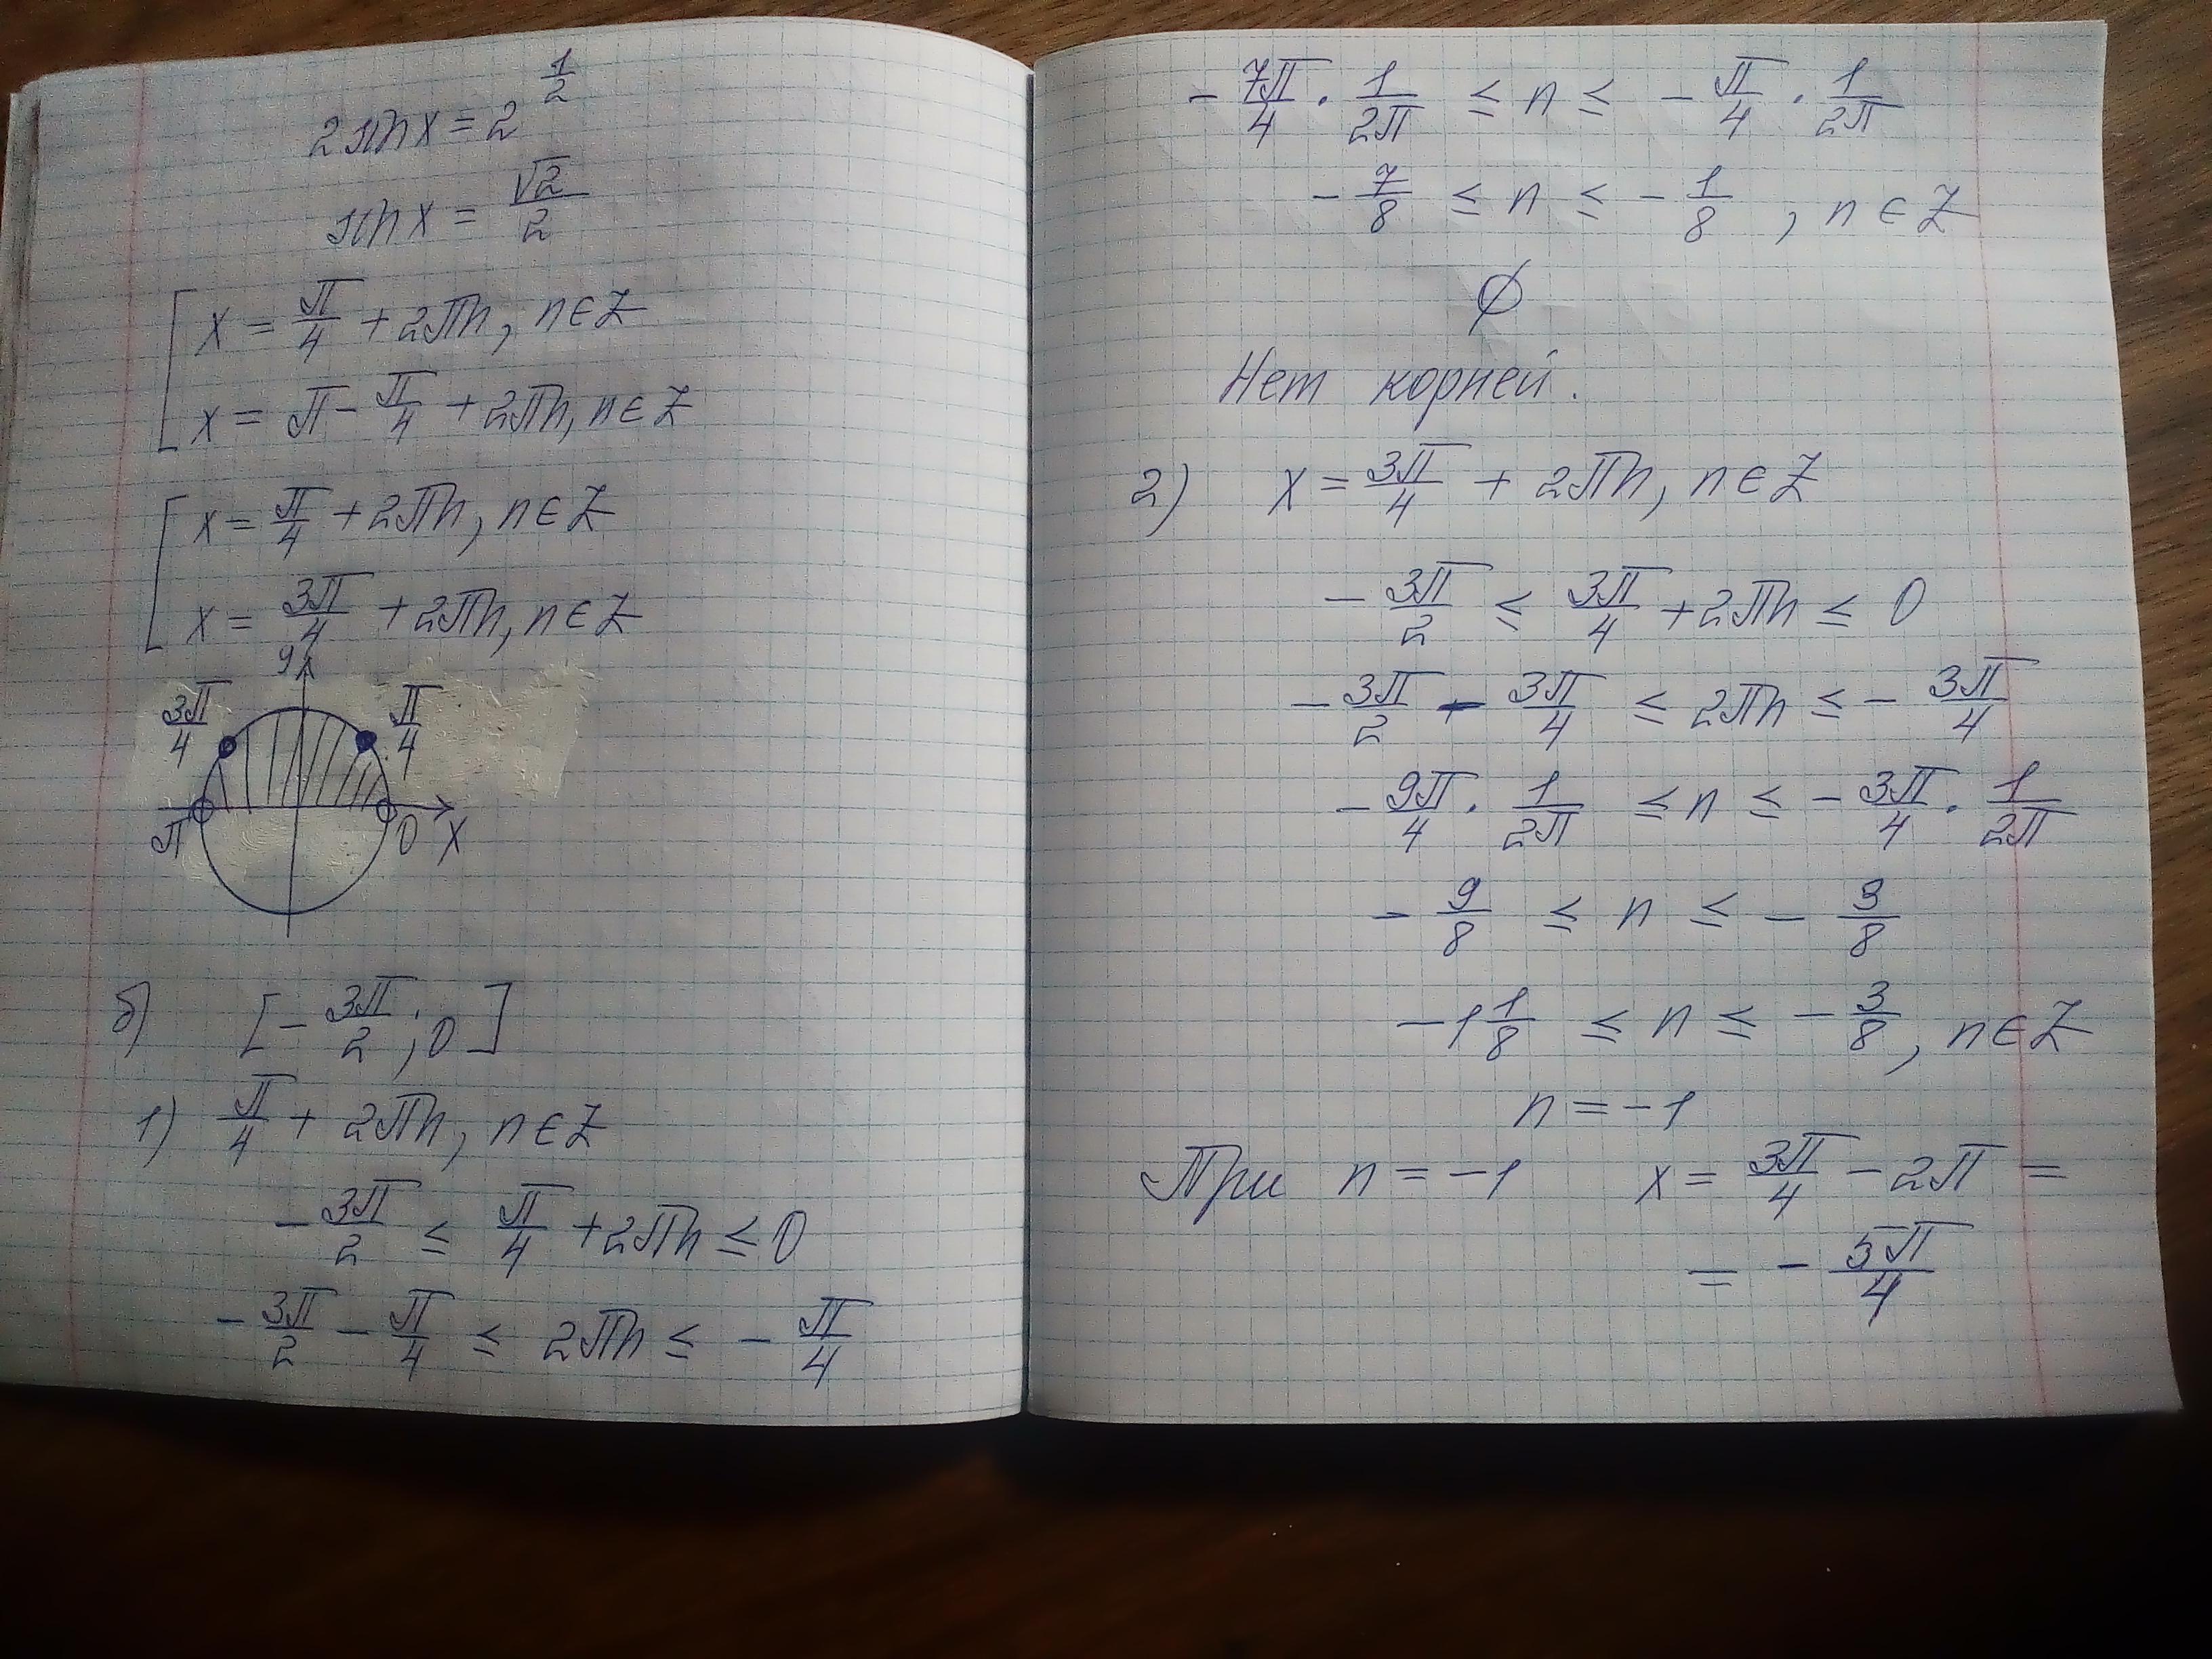 2 sin x = 2^{1/2}
sin x = √2/2
[ x = π/4 + 2πn, n ∈ Z
x = π - π/4 + 2πn, n ∈ Z
[ x = π/4 + 2πn, n ∈ Z
x = 3π/4 + 2πn, n ∈ Z
y
3π/4 π/4
π 0 x
б) [-3π/2; 0]
1) π/4 + 2πn, n ∈ Z
-3π/2 ≤ π/4 + 2πn ≤ 0
-3π/2 - π/4 ≤ 2πn ≤ -π/4
-7π/4 · 1/2π ≤ n ≤ -π/4 · 1/2π
-7/8 ≤ n ≤ -1/8, n ∈ Z
∅
Нет корней.
2) x = 3π/4 + 2πn, n ∈ Z
-3π/2 ≤ 3π/4 + 2πn ≤ 0
-3π/2 - 3π/4 ≤ 2πn ≤ -3π/4
-9π/4 · 1/2π ≤ n ≤ -3π/4 · 1/2π
-9/8 ≤ n ≤ -3/8
-1 1/8 ≤ n ≤ -3/8, n ∈ Z
n = -1
При n = -1 x = 3π/4 - 2π =
= -5π/4